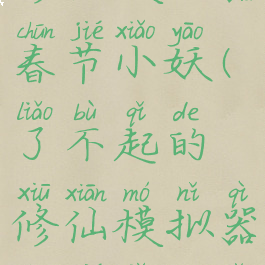 chūn jié xiǎo yāo
春节小妖(
liǎo bù qǐ de
了不起的
xiū xiān mó nǐ qì
修仙模拟器